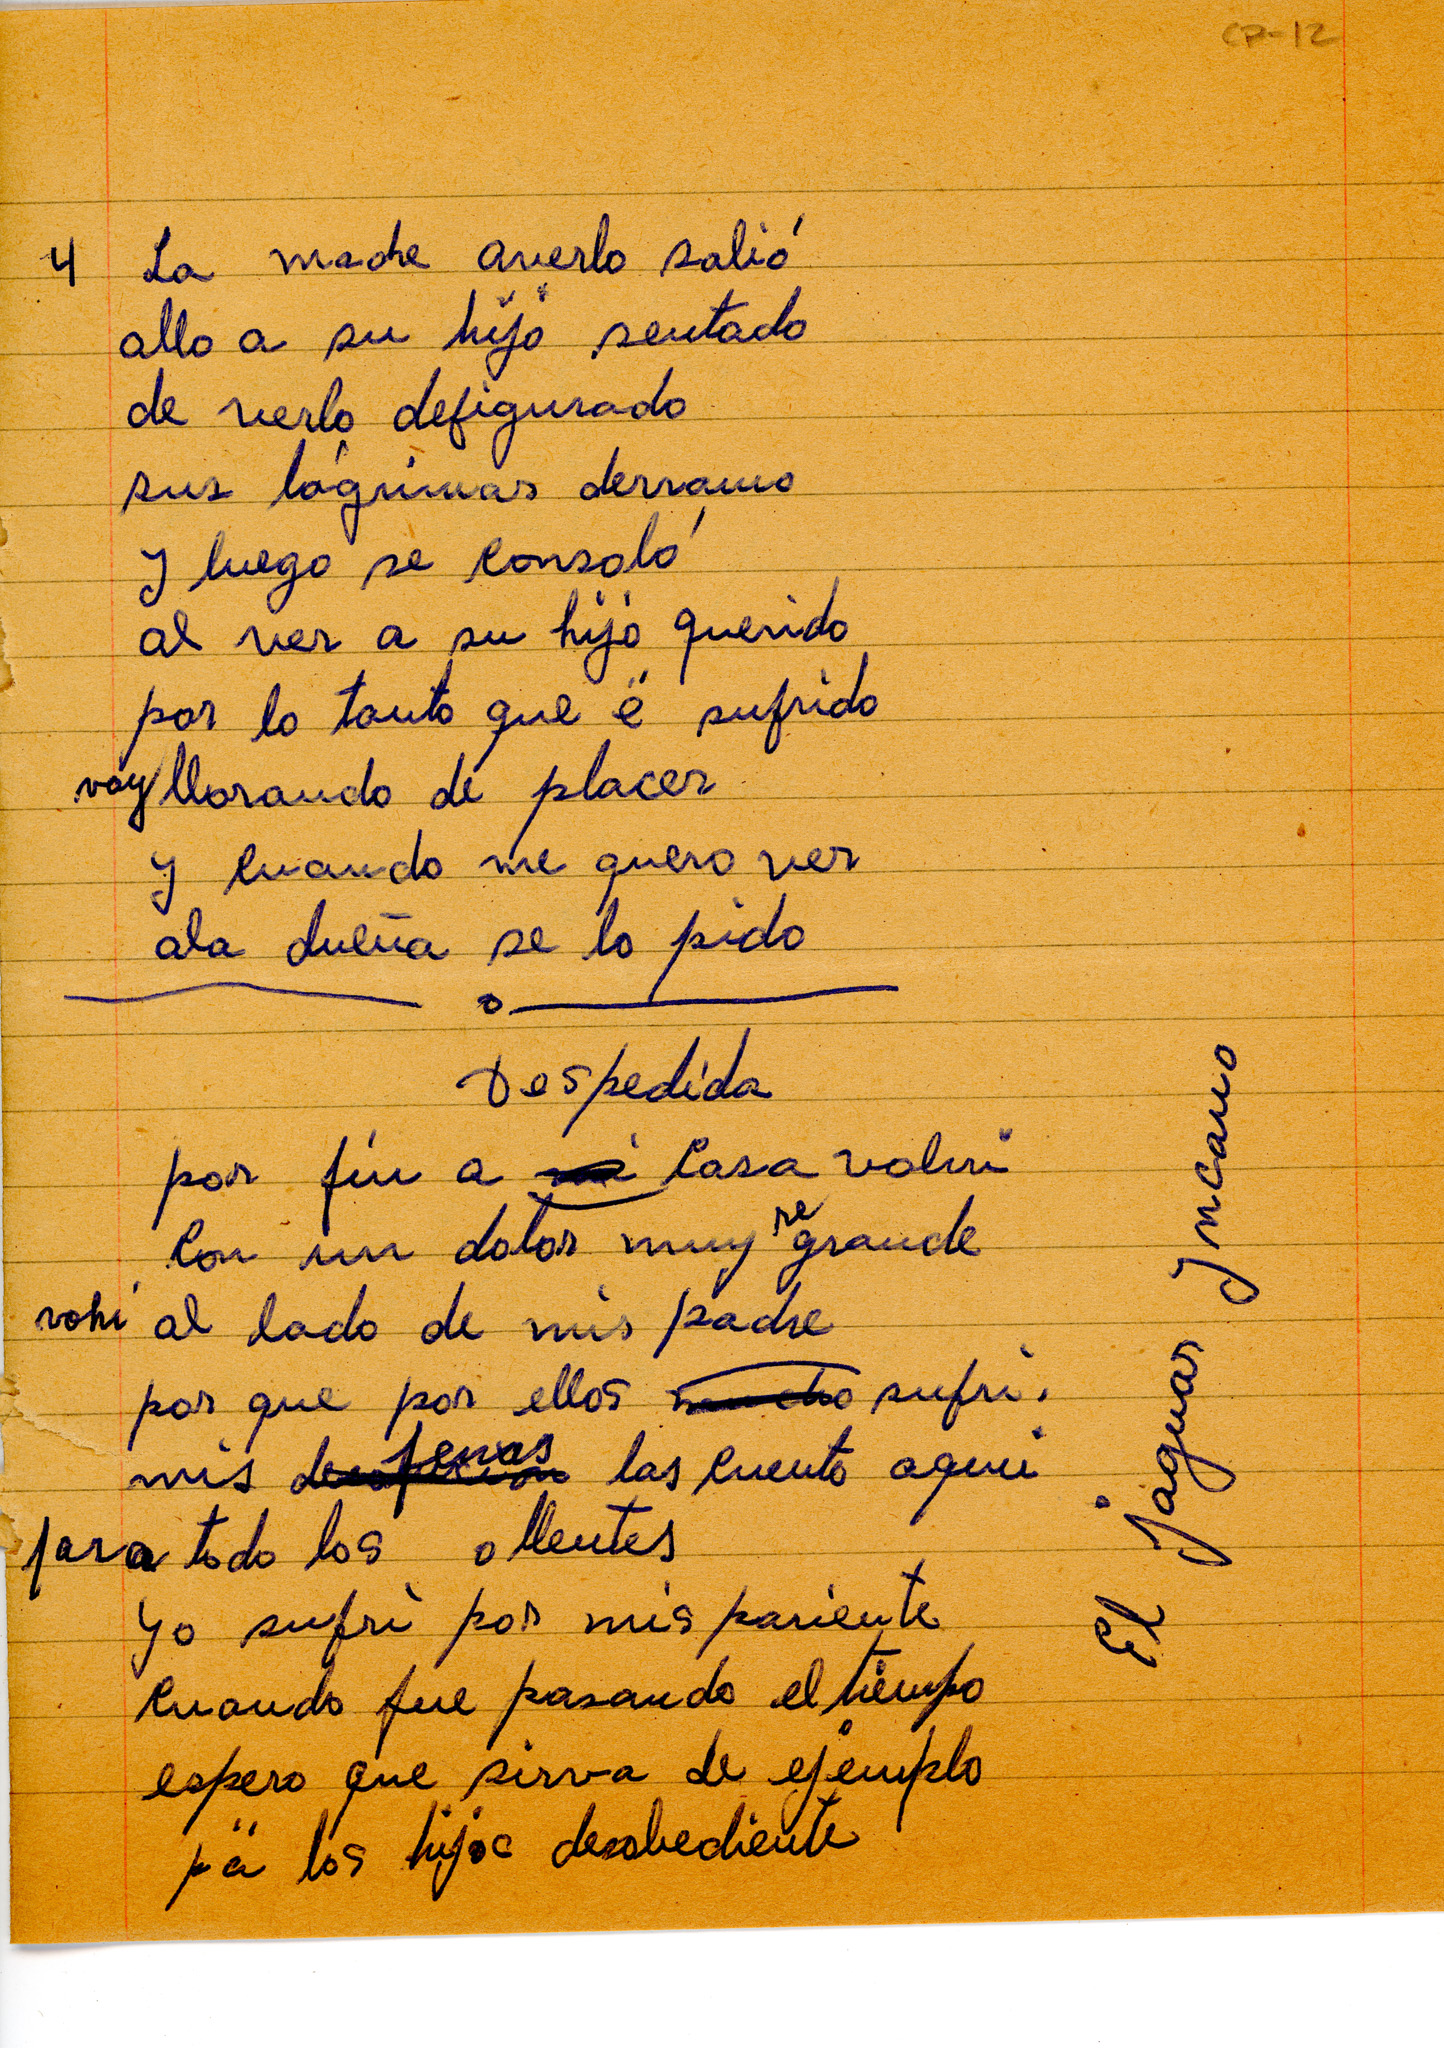 CP-12
4 La madre averlo salió
allo a su hijo sentado
de verlo defigurado
sus lágrimas derramo
y luego se consoló
al ver a su hijo querido
por lo tanto que ë sufrido
voy llorando de placer
y cuando me quero ver
ala dueña se lo pido
Despedida
por fin a mi casa volvi
con un dolor muy re grande
volvi al lado de mis padre
por que por ellos mucho sufri.
mis penas las cuento aqui
para todo los ollentes
yo sufri por mis pariente
cuando fue pasando el tiempo
espero que sirva de ejemplo
pä los hijos desobediente
El jaguar Yncano